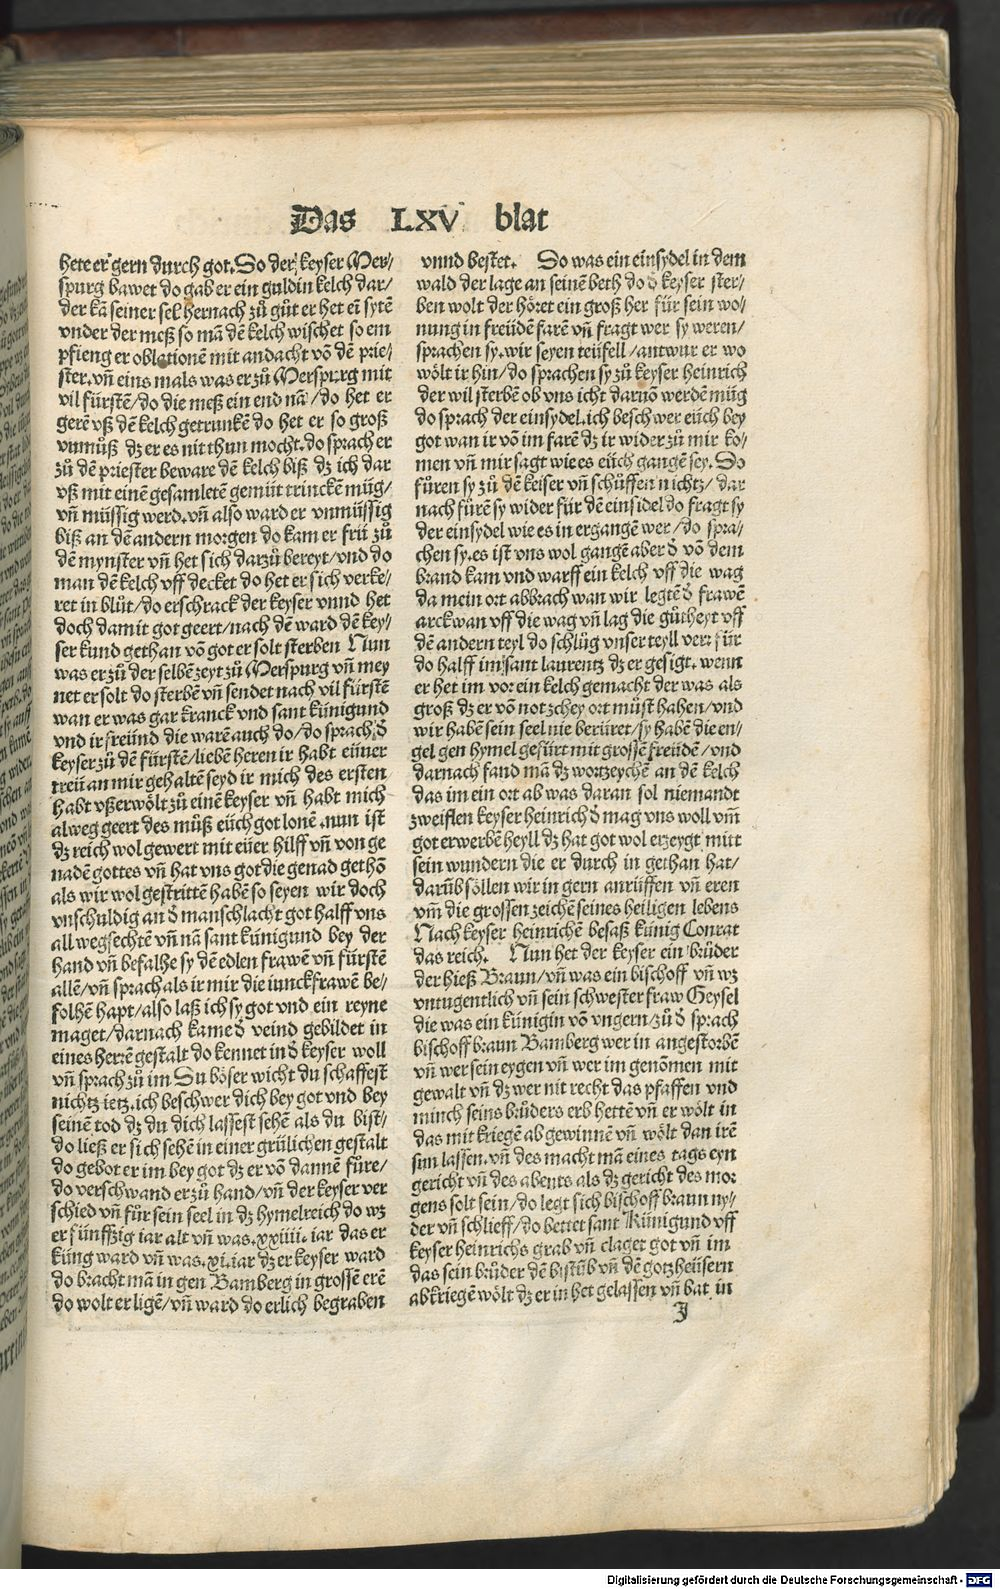 Das LXV blat
hete er gern durch got. So der keyser Mer/
spurg bawet do gab er ein guldin kelch dar/
der kā seiner sel hernach zů gůt er het eī sytē
vnder der meß so mā dē kelch wischet so em
pfieng er oblationē mit andacht vō dē prie/
ster. vñ eins mals was er zů Merspurg mit
vil fürstē/do die meß ein end nā/do het er
gerē vß dē kelch getrunkē do het er so groß
vnmůß dz er es nit thun mocht. do sprach er
zů dē priester beware dē kelch biß dz ich dar
vß mit einē gesamletē gemüt trinckē müg/
vñ müssig werd. vñ also ward er vnmüssig
biß an dē andern morgen do kam er frü zů
dē mynster vñ het sich darzů bereyt/vnd do
man dē kelch vff decket do het er sich verke/
ret in blůt/do erschrack der keyser vnnd het
doch damit got geert/nach dē ward dē key/
ser kund gethan vō got er solt sterben Nun
was er zů der selbē zeyt zů Merspurg vñ mey
net er solt do sterbē vñ sendet nach vil fürstē
wan er was gar kranck vnd sant künigund
vnd ir freünd die warē auch do/do sprach d̄
keyser zů dē fürstē/liebē heren ir habt eüner
treü an mir gehaltē seyd ir mich des ersten
habt vßerwölt zů einē keyser vñ habt mich
alweg geert des můß eüch got lonē. nun ist
dz reich wol gewert mit eüer hilff vñ von ge
nadē gottes vñ hat vns got die genad gethō
als wir wol gestrittē habē so seyen wir doch
vnschuldig an d̄ manschlacht got halff vns
all weg fechtē vñ nā sant künigund bey der
hand vñ befalhe sy dē edlen frawē vñ fürstē
allē/vñ sprach als ir mir die iunckfrawē be/
folhē hapt/also laß ich sy got vnd ein reyne
maget/darnach kame d̄ veind gebildet in
eines herrē gestalt do kennet in d̄ keyser woll
vñ sprach zů im Du böser wicht du schaffest
nichtz ietz. ich beschwer dich bey got vnd bey
seinē tod dz du dich lassest sehē als du bist/
do ließ er sich sehē in einer grülichen gestalt
do gebot er im bey got dz er vō dannē füre/
do verschwand er zů hand/vñ der keyser ver
schied vñ fůr sein seel in dz hymelreich do wz
er fünffzig iar alt vñ was. xxiiii. iar das er
küng ward vñ was. xi. iar dz er keyser ward
do bracht mā in gen Bamberg in grossē erē
do wolt er ligē/vñ ward do erlich begraben
vnnd bestet. So was ein einsydel in dem
wald der lage an seinē beth do d̄ keyser ster/
ben wolt der höret ein groß her für sein wo/
nung in freüdē farē vñ fragt wer sy weren/
sprachen sy. wir seyen teüfell/antwur er wo
wölt ir hin/do sprachen sy zů keyser heinrich
der wil sterbē ob vns icht daruō werdē müg
do sprach der einsydel. ich beschwer eüch bey
got wan ir vō im farē dz ir wider zů mir ko/
men vñ mir sagt wie es eüch gangē sey. So
fůren sy zů dē keiser vñ schüffen nichtz/dar
nach fůrē sy wider für dē einsidel do fragt sy
der einsydel wie es in ergangē wer/do spra/
chen sy. es ist vns wol gangē aber d̄ vō dem
brand kam vnd warff ein kelch vff die wag
da mein ort abbrach wan wir legtē d̄ frawē
arckwan vff die wag vñ lag die gůtheyt vff
dē andern teyl do schlůg vnser teyll verr für
do halff im sant laurentz dz er gesigt. wenn
er het im vor ein kelch gemacht der was als
groß dz er vō not zchey ort müst haben/vnd
wir habē sein seel nie berüret/sy habē die en/
gel gen hymel gefürt mit grossē freüdē/vnd
darnach fand mā dz wortzeychē an dē kelch
das im ein ort ab was daran sol niemandt
zweiflen keyser heinrich d̄ mag vns woll vm̄
got erwerbē heyll dz hat got wol erzeygt mitt
sein wundern die er durch in gethan hat/
darūb söllen wir in gern anrüffen vñ eren
vm̄ die grossen zeichē seines heiligen lebens
Nach keyser heinrichē besaß künig Conrat
das reich. Nun het der keyser ein brůder
der hieß Braun/vñ was ein bischoff vñ wz
vntugentlich vñ sein schwester fraw Geysel
die was ein künigin vō vngern/zů d̄ sprach
bischoff braun Bamberg wer in angestorbē
vñ wer sein eygen vñ wer im genōmen mit
gewalt vñ dz wer nit recht das pfaffen vnd
münch seins brůders erb hettē vñ er wölt in
das mit kriegē ab gewinnē vñ wölt dan irē
sun lassen. vñ des macht mā eines tags eyn
gericht vñ des abents als dz gericht des mor
gens solt sein/do legt sich bischoff braun ny/
der vñ schlieff/do bettet sant Künigund vff
keyser heinrichs grab vñ claget got vñ im
das sein brůder dē bistūb vñ dē gotzheüsern
abkriegē wölt dz er in het gelassen vñ bat in
J
Digitalisierung gefördert durch die Deutsche Forschungsgemeinschaft - DFG